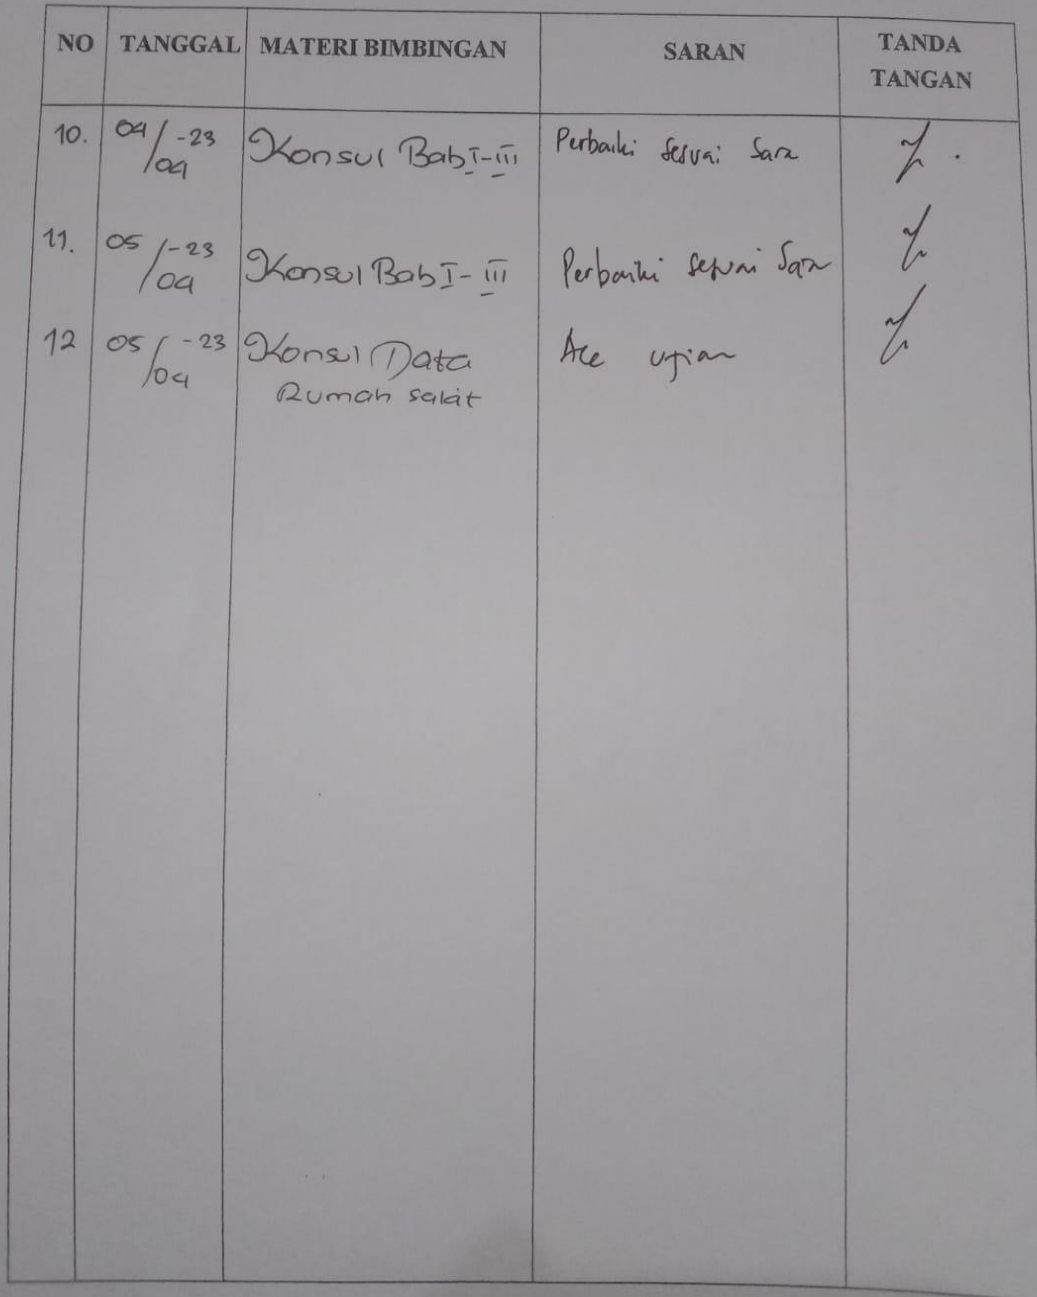 NO TANGGAL MATERI BIMBINGAN SARAN TANDA TANGAN
10. 04/04-23 Konsul Bab I-III Perbaiki sesuai Sara
11. 05/04-23 Konsul Bab I-III Perbaiki sesuai Sara
12 05/04-23 Konsul Data Acc ujian
Rumah sakit